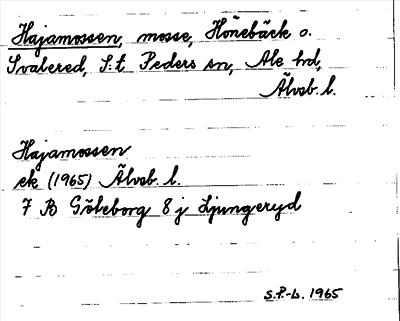 Hajamossen, mosse, Hönebäck o.
Svalered, S:t Peders sn, Ale hd,
Älvsb. l.
Hajamossen
ek (1965) Älvsb. l.
7 B Göteborg 8 j Ljungeryd
S.P.-L. 1965